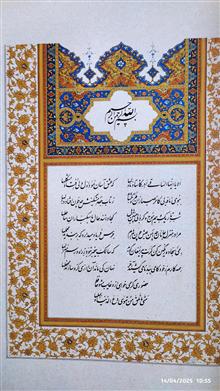 بسم الله الرحمن الرحیم
الا یا ایها الساقی ادر کاسا و ناولها که عشق آسان نمود اول ولی افتاد مشکلها
ببوی نافه‌ای کاخر صبا زان طره بگشاید ز تاب جعد مشکینش چه خون افتاد در دلها
شب تاریک و بیم موج و گردابی چنین هایل کجا دانند حال ما سبکباران ساحلها
مرا در منزل جانان چه امن عیش چون هر دم جرس فریاد می‌دارد که بربندید محملها
بمی سجاده رنگین کن گرت پیر مغان گوید که سالک بیخبر نبود ز راه و رسم منزلها
همه کارم ز خود کامی ببدنامی کشید آخر نهان کی ماند آن رازی کزو سازند محفلها
حضوری گر همی خواهی ازو غایب مشو حافظ
متی ما تلق من تهوی دع الدنیا و اهملها
14/04/2025 10:55